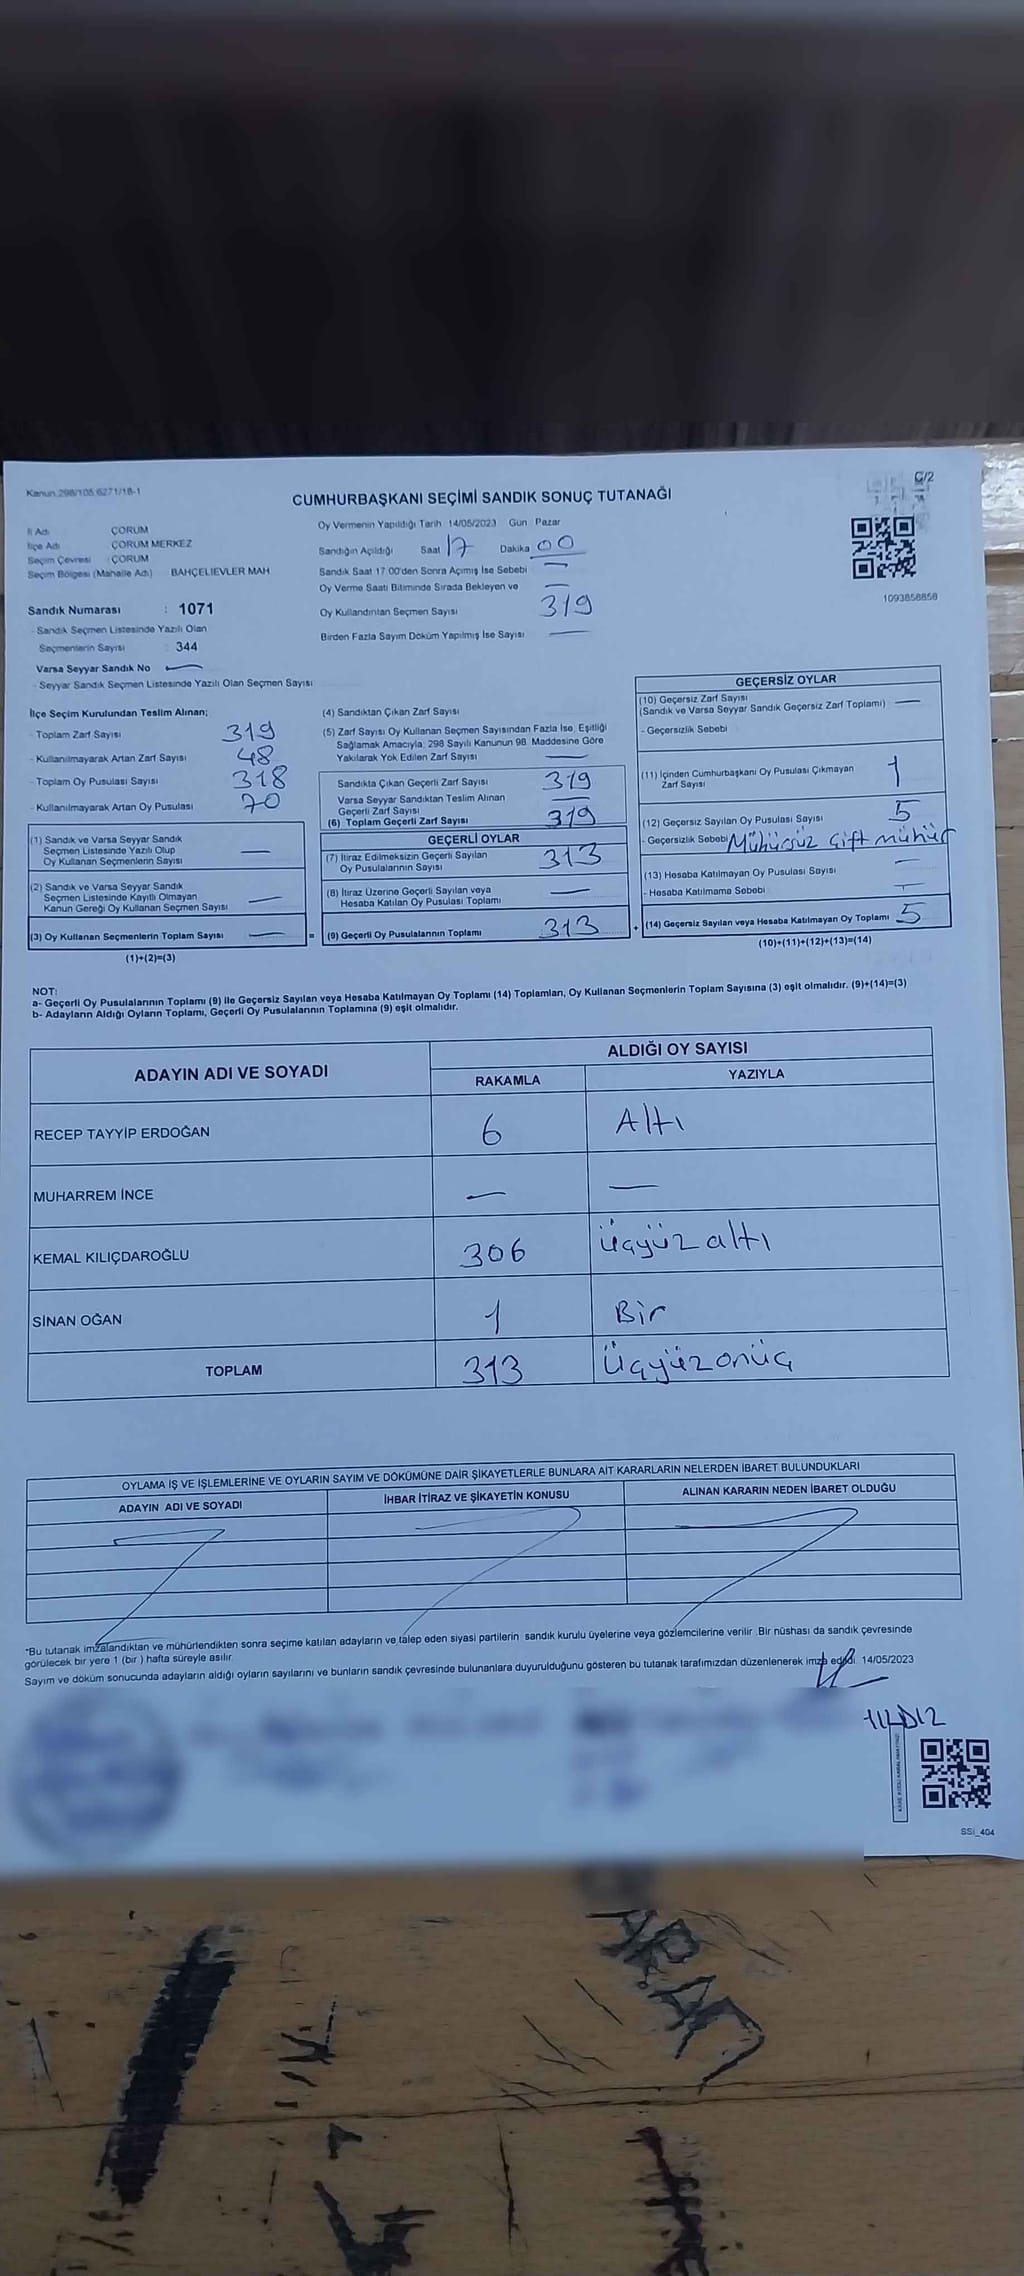 Kanun:298/105,6271/18-1
C/2
CUMHURBAŞKANI SEÇİMİ SANDIK SONUÇ TUTANAĞI
İl Adı ÇORUM
İlçe Adı ÇORUM MERKEZ
Seçim Çevresi : ÇORUM
Seçim Bölgesi (Mahalle Adı) BAHÇELİEVLER MAH
Sandık Numarası : 1071
- Sandık Seçmen Listesinde Yazılı Olan
Seçmenlerin Sayısı 344
Varsa Seyyar Sandık No —
- Seyyar Sandık Seçmen Listesinde Yazılı Olan Seçmen Sayısı
Oy Vermenin Yapıldığı Tarih 14/05/2023 Gün : Pazar
Sandığın Açıldığı Saat 17 Dakika 00
Sandık Saat 17:00'den Sonra Açımış İse Sebebi —
Oy Verme Saati Bitiminde Sırada Bekleyen ve —
Oy Kullandırılan Seçmen Sayısı 319
Birden Fazla Sayım Döküm Yapılmış İse Sayısı —
1093858858
İlçe Seçim Kurulundan Teslim Alınan;
- Toplam Zarf Sayısı 319
- Kullanılmayarak Artan Zarf Sayısı 48
- Toplam Oy Pusulası Sayısı 318
- Kullanılmayarak Artan Oy Pusulası 70
(1) Sandık ve Varsa Seyyar Sandık
Seçmen Listesinde Yazılı Olup
Oy Kullanan Seçmenlerin Sayısı —
(2) Sandık ve Varsa Seyyar Sandık
Seçmen Listesinde Kayıtlı Olmayan
Kanun Gereği Oy Kullanan Seçmen Sayısı —
(3) Oy Kullanan Seçmenlerin Toplam Sayısı —
(1)+(2)=(3)
=
(4) Sandıktan Çıkan Zarf Sayısı
(5) Zarf Sayısı Oy Kullanan Seçmen Sayısından Fazla İse, Eşitliği
Sağlamak Amacıyla, 298 Sayılı Kanunun 98. Maddesine Göre
Yakılarak Yok Edilen Zarf Sayısı —
Sandıkta Çıkan Geçerli Zarf Sayısı 319
Varsa Seyyar Sandıktan Teslim Alınan
Geçerli Zarf Sayısı —
(6) Toplam Geçerli Zarf Sayısı 319
GEÇERLİ OYLAR
(7) İtiraz Edilmeksizin Geçerli Sayılan
Oy Pusulalarının Sayısı 313
(8) İtiraz Üzerine Geçerli Sayılan veya
Hesaba Katılan Oy Pusulası Toplamı —
(9) Geçerli Oy Pusulalarının Toplamı 313
+
GEÇERSİZ OYLAR
(10) Geçersiz Zarf Sayısı
(Sandık ve Varsa Seyyar Sandık Geçersiz Zarf Toplamı) —
- Geçersizlik Sebebi
(11) İçinden Cumhurbaşkanı Oy Pusulası Çıkmayan
Zarf Sayısı 1
(12) Geçersiz Sayılan Oy Pusulası Sayısı 5
- Geçersizlik Sebebi Mühürsüz Çift mühür
(13) Hesaba Katılmayan Oy Pusulası Sayısı —
- Hesaba Katılmama Sebebi —
(14) Geçersiz Sayılan veya Hesaba Katılmayan Oy Toplamı 5
(10)+(11)+(12)+(13)=(14)
NOT:
a- Geçerli Oy Pusulalarının Toplamı (9) ile Geçersiz Sayılan veya Hesaba Katılmayan Oy Toplamı (14) Toplamları, Oy Kullanan Seçmenlerin Toplam Sayısına (3) eşit olmalıdır. (9)+(14)=(3)
b- Adayların Aldığı Oyların Toplamı, Geçerli Oy Pusulalarının Toplamına (9) eşit olmalıdır.
ADAYIN ADI VE SOYADI
ALDIĞI OY SAYISI
RAKAMLA YAZIYLA
RECEP TAYYİP ERDOĞAN 6 Altı
MUHARREM İNCE — —
KEMAL KILIÇDAROĞLU 306 üçyüz altı
SİNAN OĞAN 1 Bir
TOPLAM 313 Üçyüz onüç
OYLAMA İŞ VE İŞLEMLERİNE VE OYLARIN SAYIM VE DÖKÜMÜNE DAİR ŞİKAYETLERLE BUNLARA AİT KARARLARIN NELERDEN İBARET BULUNDUKLARI
ADAYIN ADI VE SOYADI İHBAR İTİRAZ VE ŞİKAYETİN KONUSU ALINAN KARARIN NEDEN İBARET OLDUĞU
*Bu tutanak imzalandıktan ve mühürlendikten sonra seçime katılan adayların ve talep eden siyasi partilerin sandık kurulu üyelerine veya gözlemcilerine verilir. Bir nüshası da sandık çevresinde
görülecek bir yere 1 (bir ) hafta süreyle asılır.
Sayım ve döküm sonucunda adayların aldığı oyların sayılarını ve bunların sandık çevresinde bulunanlara duyurulduğunu gösteren bu tutanak tarafımızdan düzenlenerek imza edildi. 14/05/2023
YILDIZ
SSi_404